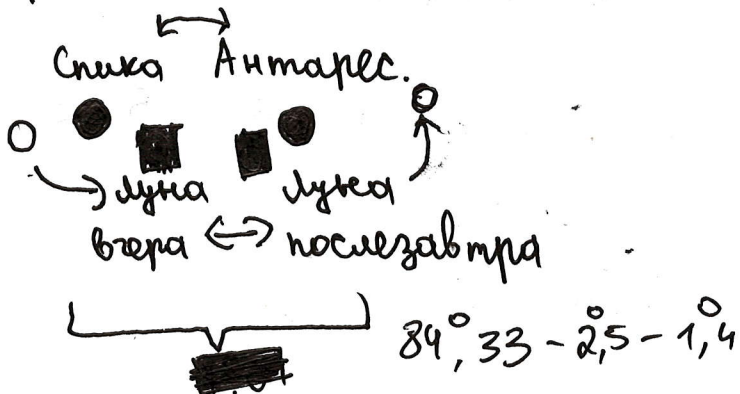 Спика Антарес.
Луна Луна
вчера послезавтра
84°,33 - 2°,5 - 1°,4